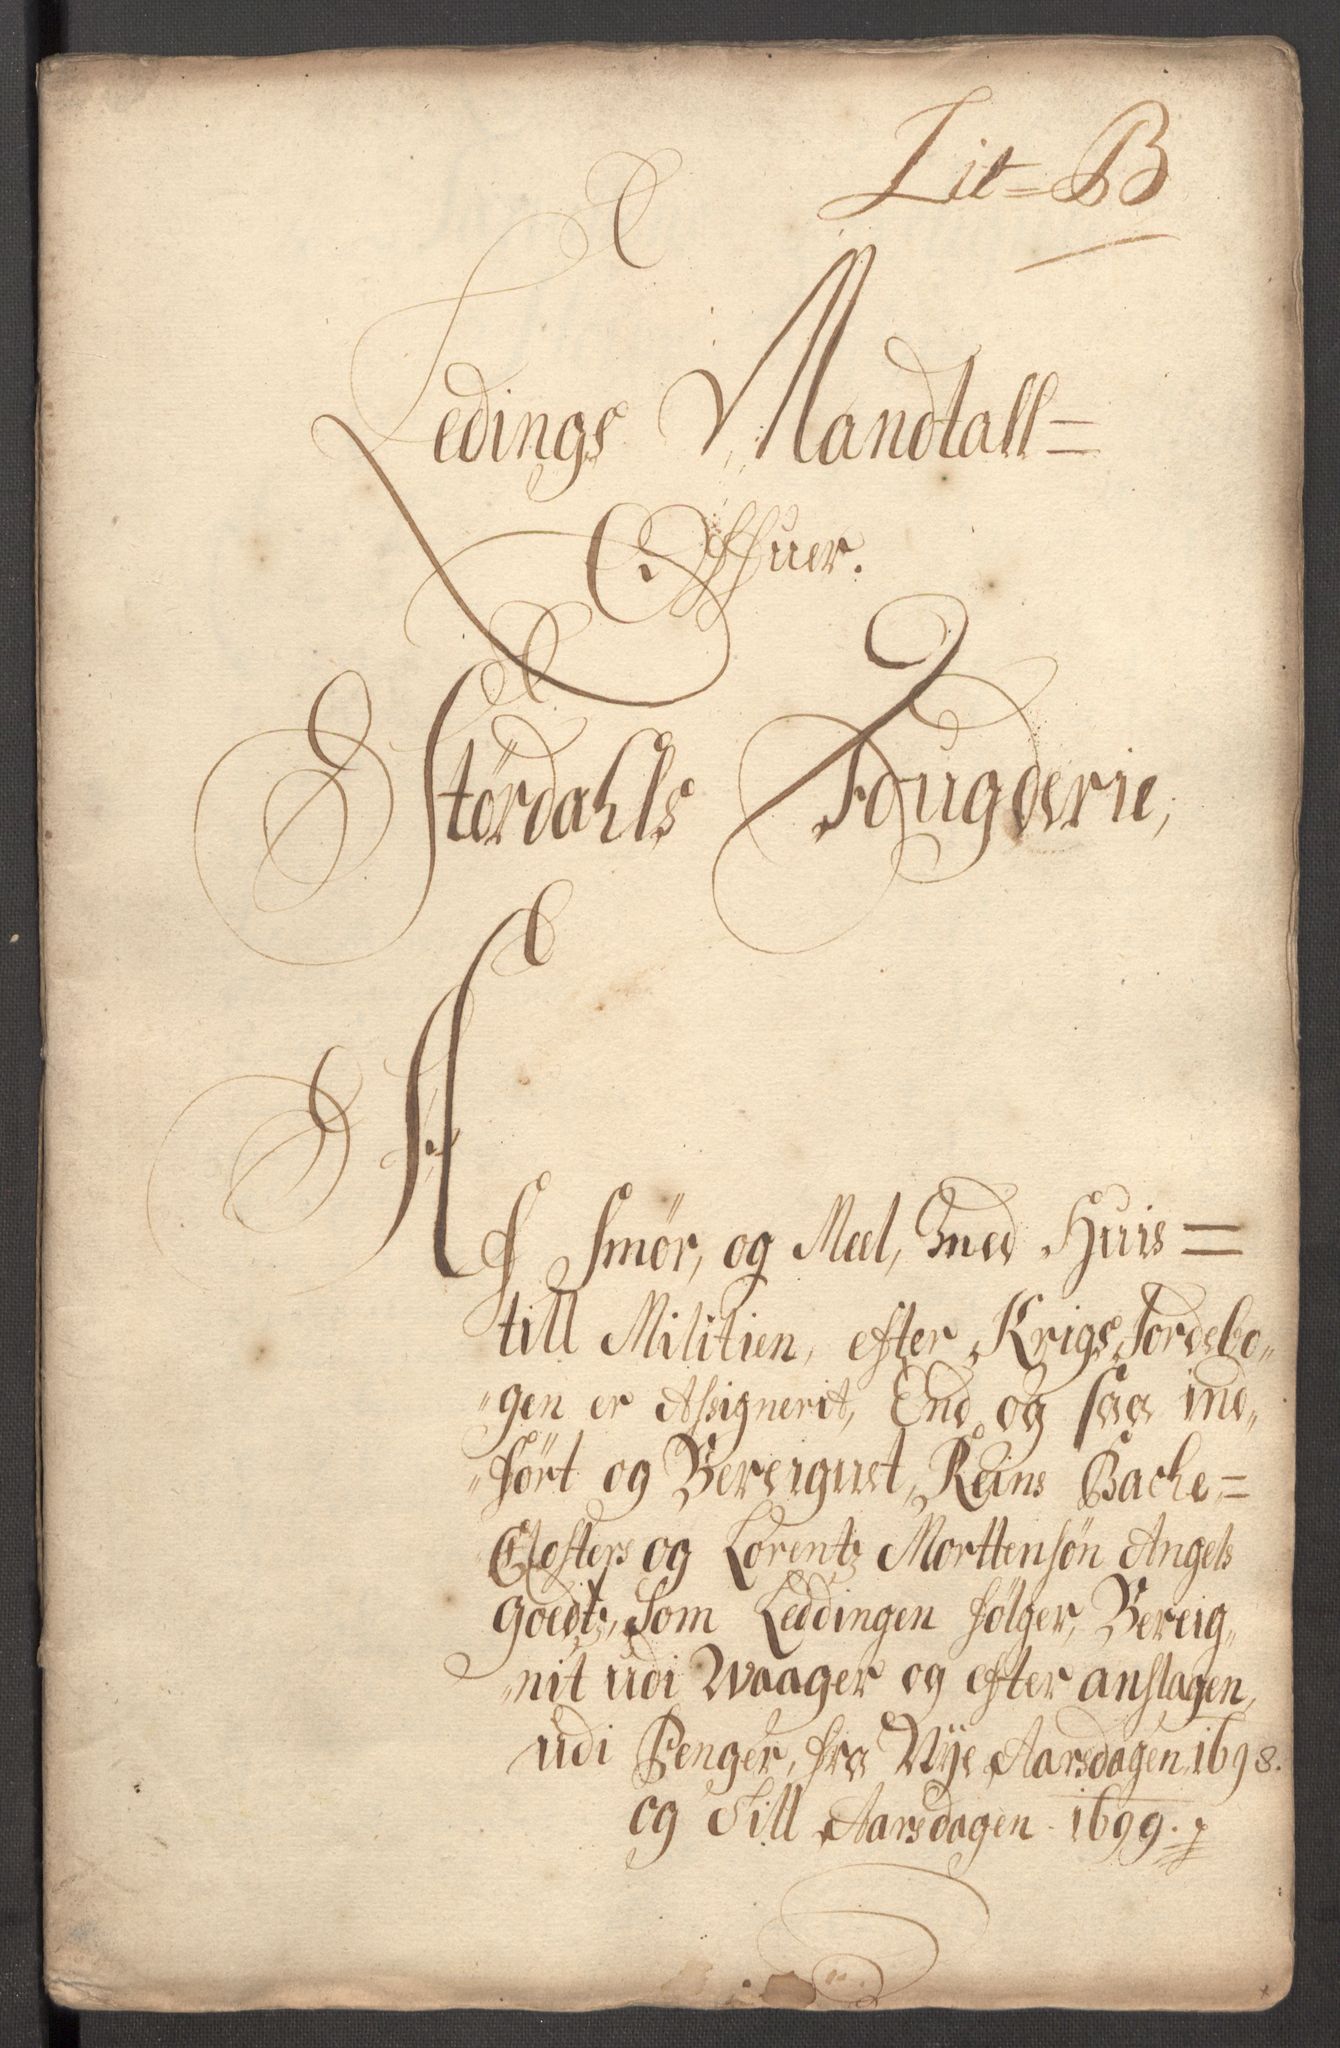 Lit=B
Ledings Mandtall=
Offuer.
Størdahls Fougderie,
Af Smør, og Mæl, med Huis=
till Militien, efter Krigs Jordebo„
„gen er Assignerit, End og saa ind„
„ført og Bereignet, Reins Backe=
Closters og Lorentz Morttensøn Angels
Goedtz, Som Leddingen følger, Bereig„
„nit udi Waager og efter anslagen,
udi Penger, fra Nye Aarsdagen 1698.
og Till Aarsdagen 1699.